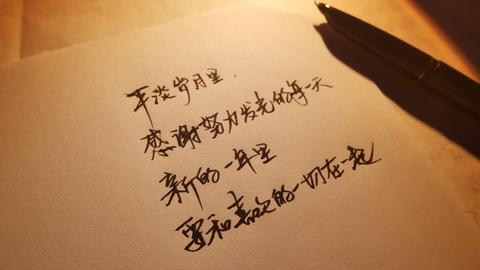 平淡岁月里，
感谢努力发光的每一天
新的一年里
要和喜欢的一切在一起